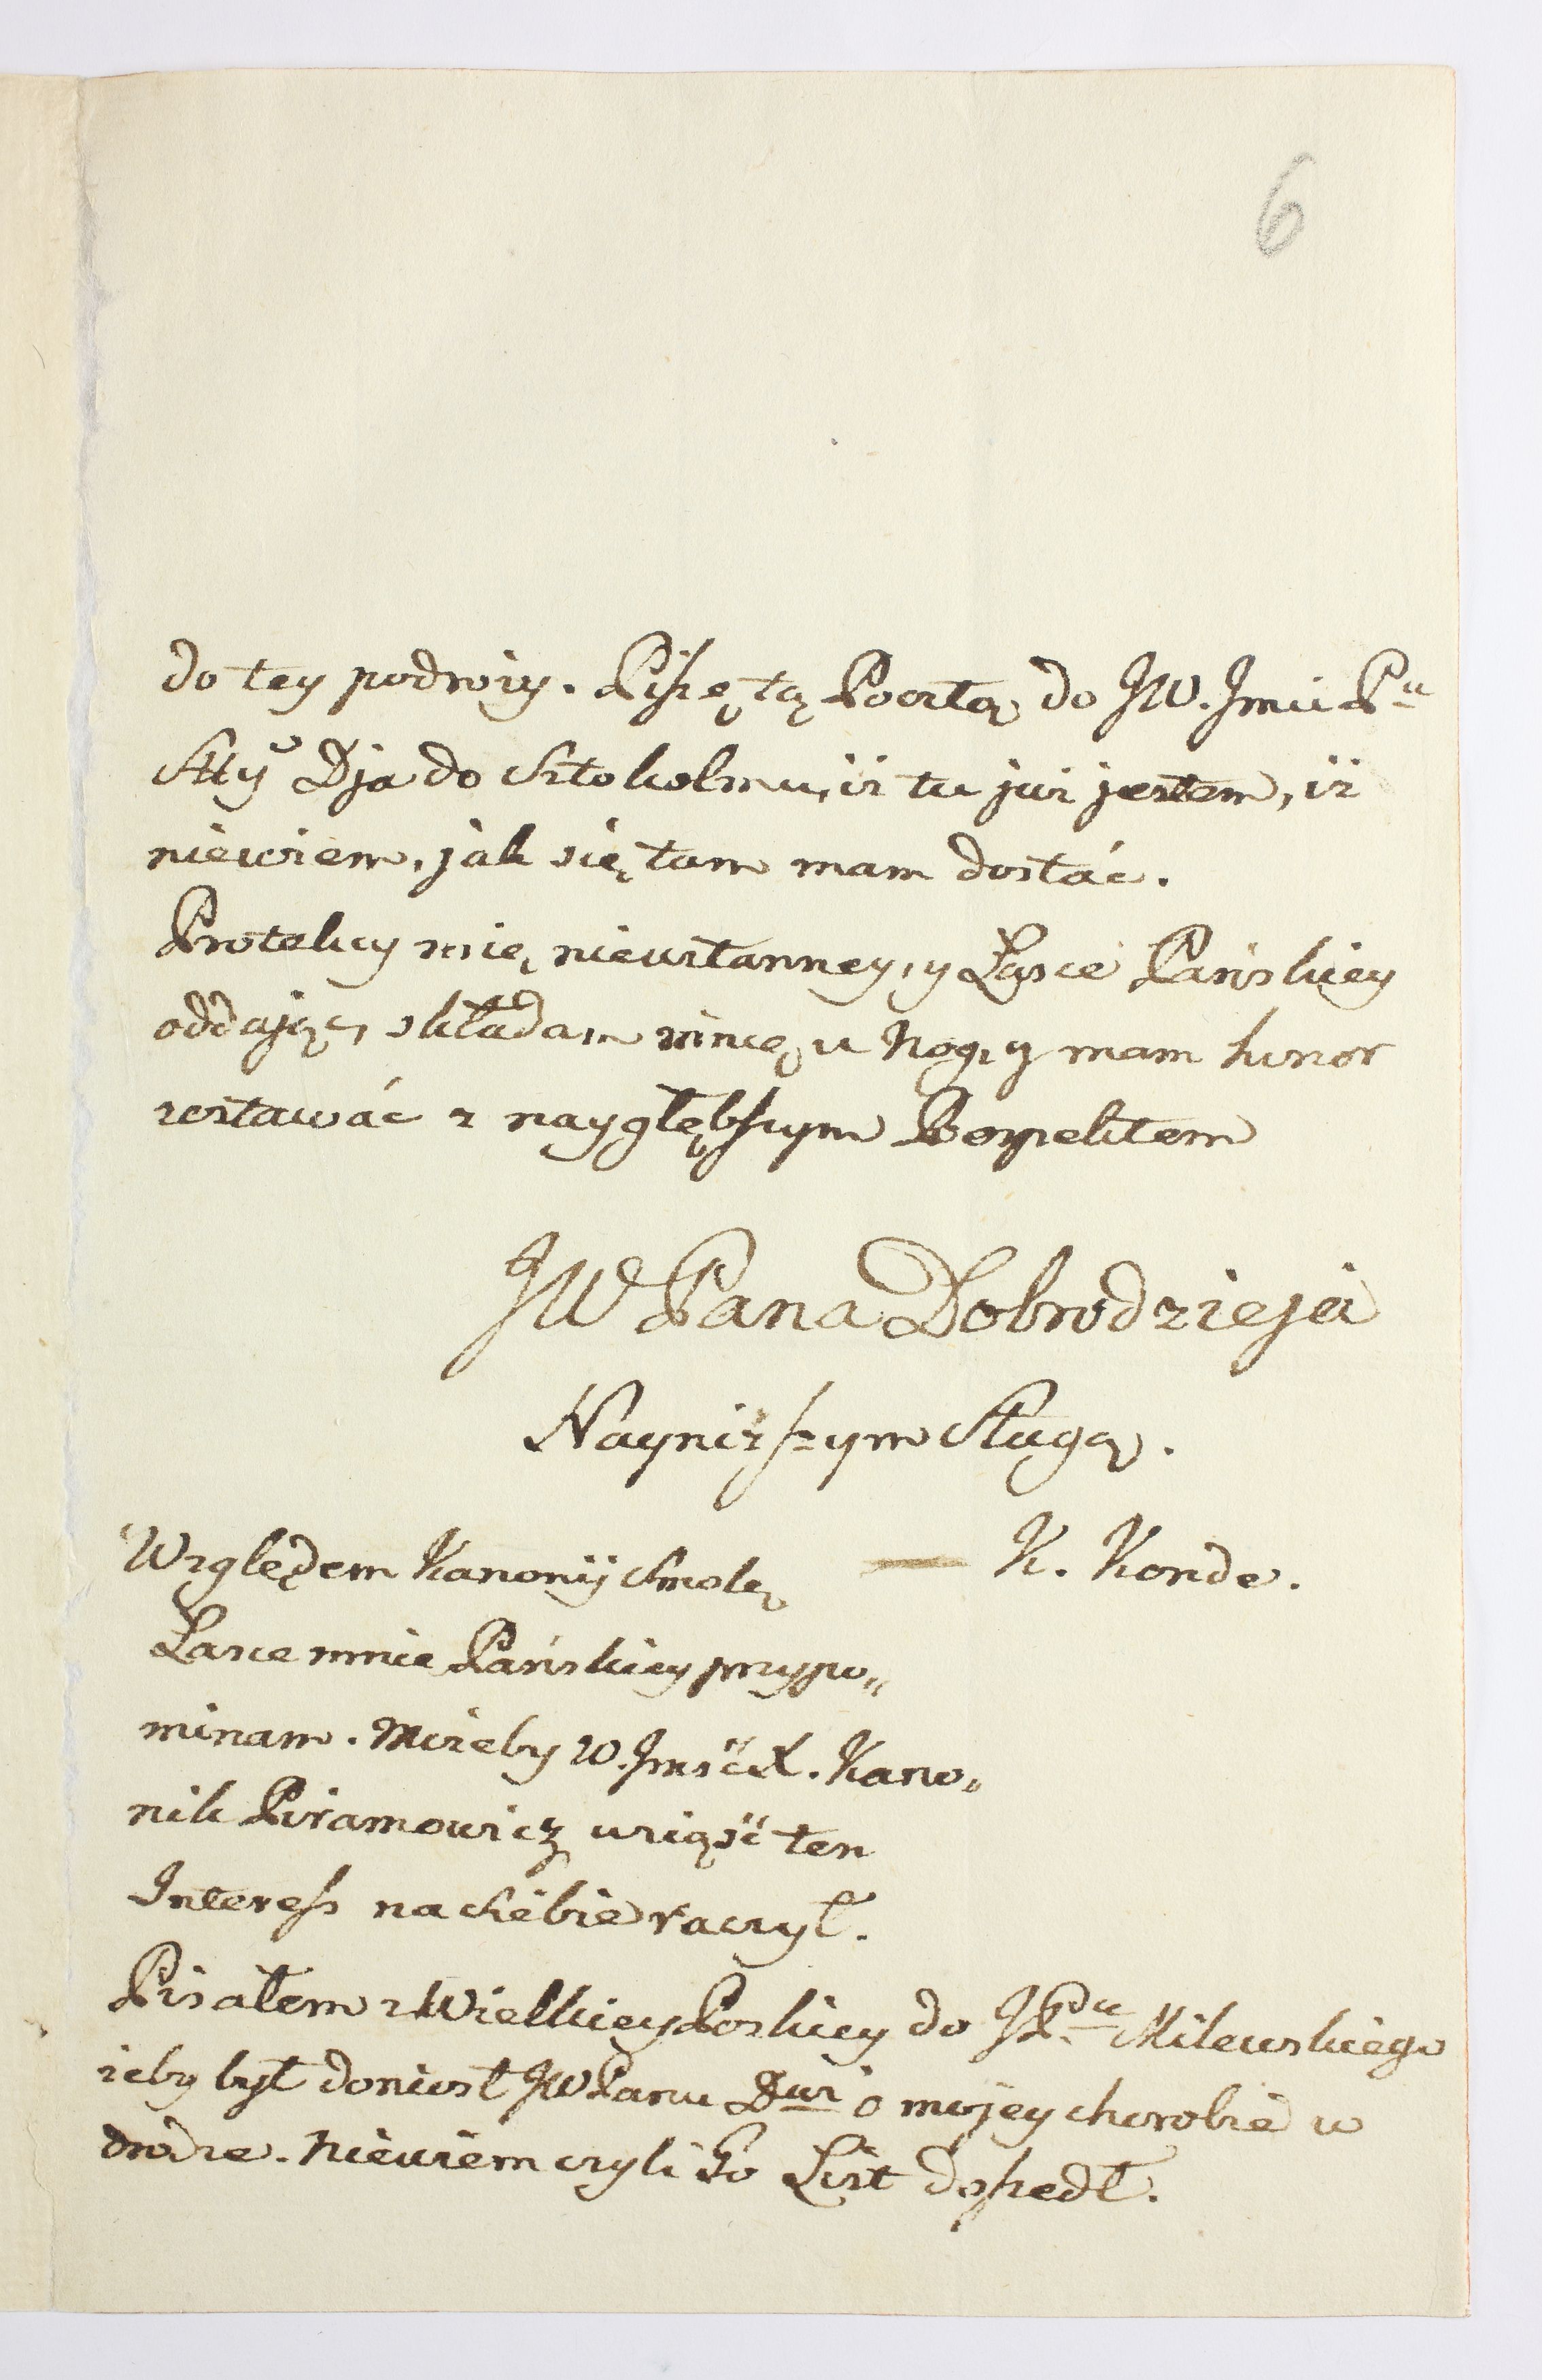 6
do tey podroży. Piszę tą Pocztą do JW. Jmci Pu
Dja do Sztokolmu, iż tu już jestem, iż
niewiem, jak się tam mam dostać.
Protekcy mię nieustanney, y Łasce Pańskiey
oddając, składam mnie u Nog, y mam honor
zostawać z naygłębszym Respektem
JW Pana Dobrodzieja
Nayniższym Sługą.
K. Konde.
Względem Kanonij Smole
Łasce mnie Pańskiey przypo„
minam. Możeby W. Jmść X. Kano„
nik Piramowicz wziąść ten
Interess na siebie raczył.
Pisałem z Wielkiey Polskiey do JPu Milewskiego
żeby był doniosł JWPanu Dwi o mojey chorobie w
drodze. Niewiem czyli Go List doszedł.